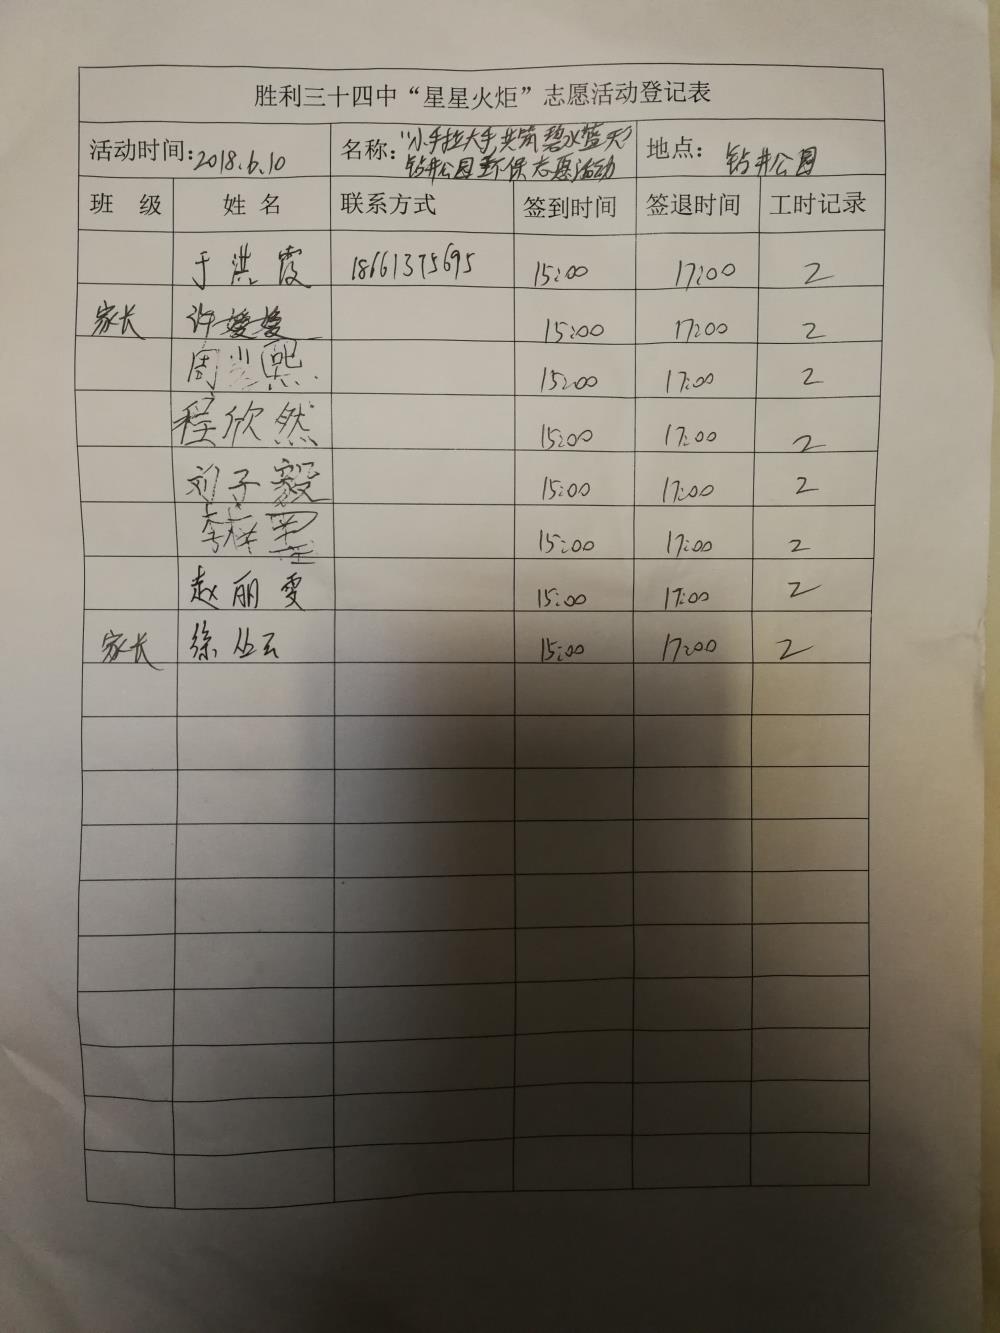 胜利三十四中“星星火炬”志愿活动登记表
活动时间：2018.6.10 名称：“小手拉大手，共筑碧水蓝天” 地点：钻井公园
钻井公园环保志愿活动
班 级 姓 名 联系方式 签到时间 签退时间 工时记录
于洪霞 18661375695 15:00 17:00 2
家长 许媛媛 15:00 17:00 2
周 熙 15:00 17:00 2
程欣然 15:00 17:00 2
刘子毅 15:00 17:00 2
李 15:00 17:00 2
赵丽雯 15:00 17:00 2
家长 徐丛云 15:00 17:00 2